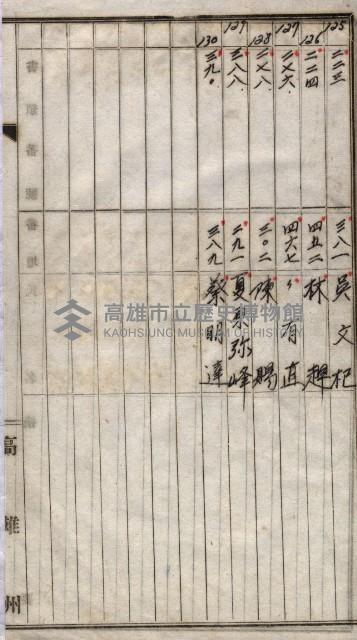 125 二二三 三八一 吳文杞
126 二二四 四五二 林
127 二七六 四六七 〃 有直
128 二七八 三〇二 陳賜
129 二八八 二九一 夏 弥峰
130 三九〇 三八九 蔡明達
高雄州
高雄市立歷史博物館
KAOHSIUNG MUSEUM OF HISTORY